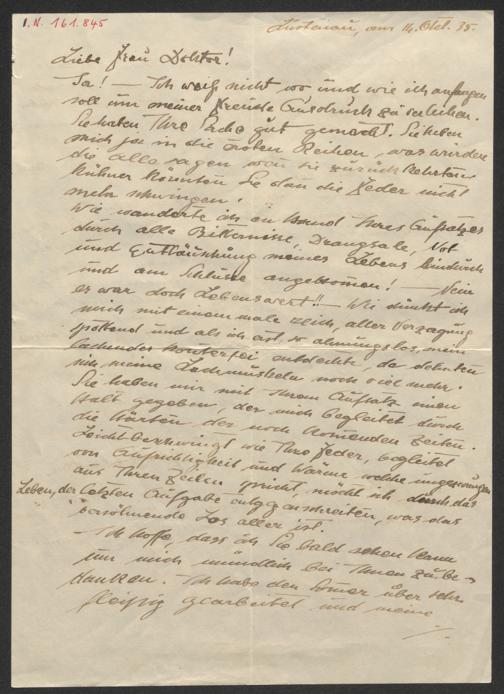 I.N. 161.845
Lustenau, am 14. Okt. 35.
Liebe Frau Doktor!
Ja! — Ich weiß nicht wo und wie ich anfangen
soll um meiner Freude Ausdruck zu verleihen.
Sie haben Ihre Sache gut gemacht! Sie heben
mich ja in die ersten Reihen, was würden
die alle sagen wenn sie zurück kehrten
kühner könnten Sie dan die Feder nicht
mehr schwingen!
Wie wanderte ich an Hand Ihres Aufsatzes
durch alle Bitternisse, Drangsale, Not
und Enttäuschung meines Lebens hindurch
und am Schlusse angekommen! — Nein
es war doch Lebenswert!! — Wie dünkt ich
mich mit einem male reich, aller Verzagung
spottend und als ich erst so ahnungslos, mein
lachendes Konterfei entdeckte, da dehnten
sich meine Lachmuskeln noch viel mehr.
Sie haben mir mit Ihrem Aufsatz einen
Halt gegeben, der mich begleitet durch
die Härten der noch komenden Zeiten.
Leicht beschwingt wie Ihre Feder, begleitet
von Aufrichtigkeit und Wärme welche ungezwungen
aus Ihren Zeilen spricht, möcht ich durch das
Leben, der letzten Aufgabe entgegenschreiten, was das
versöhnende Los aller ist.
– Ich hoffe, dass ich Sie bald sehen kann
um mich mündlich bei Ihnen zu be-
danken. Ich habe den Somer über sehr
fleißig gearbeitet und meine